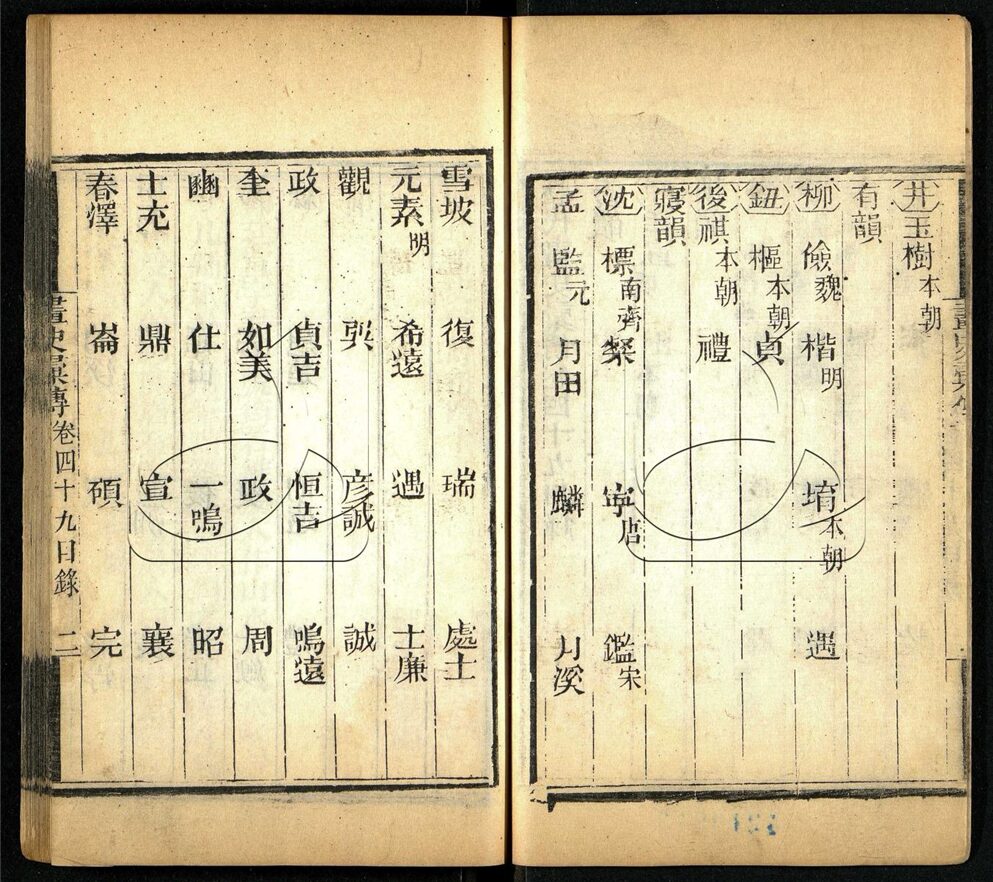 井玉樹本朝
有韻
柳 儉魏 楷明 堉本朝 遇
鈕 樞本朝 貞
後祺本朝 禮
寢韻
沈 標南齊 粲 寧唐 鑑宋
孟 監元 月田 麟 月溪
雪坡 復 瑞 處士
元素明 希遠 遇 士廉
觀 巽 彦誠 誠
政 貞吉 恒吉 鳴遠
奎 如美 政 周
豳 仕 一鳴 昭
士充 鼎 宣 襄
春澤 崙 碩 完
畫史彙傳 卷四十九目錄 二